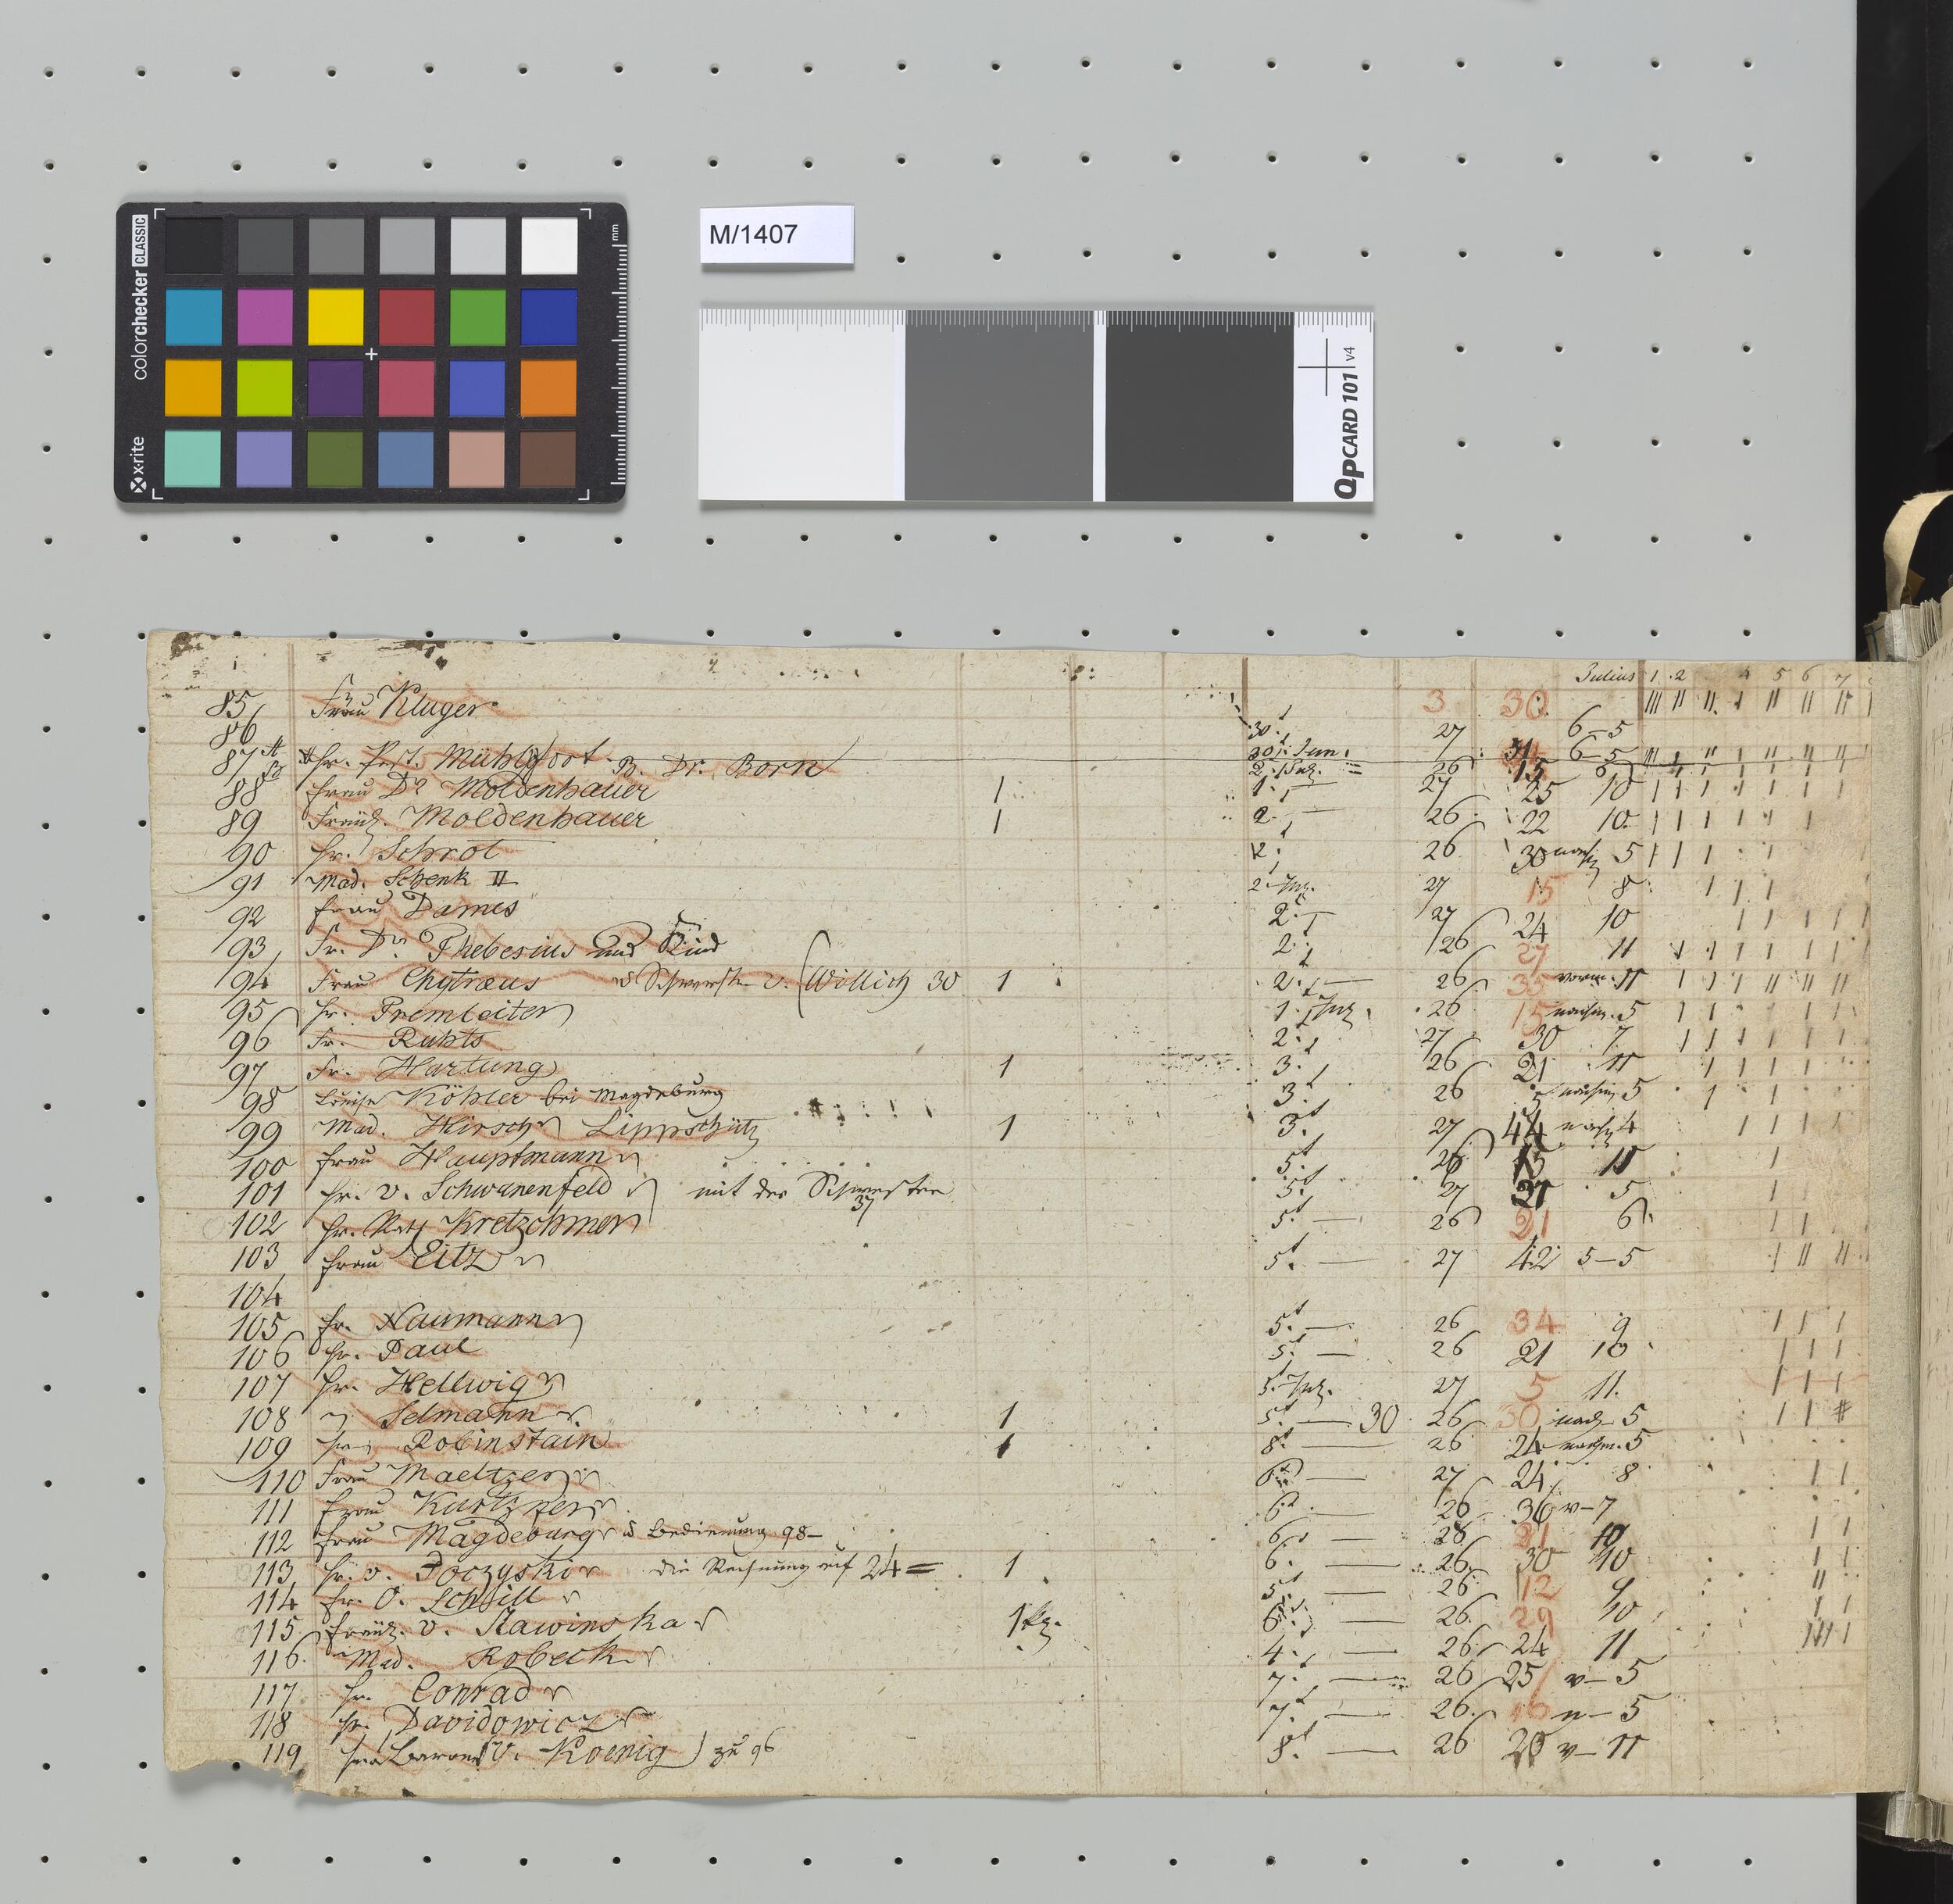 colorchecker CLASSIC
x-rite
mm
M/1407
QPCARD 101 v4
Julius 1 2 4 5 6 7
85 Frau Kluger 3 30
86 30t 27 6-5
87 A Hr. Prof. Mühlefoot B. Dr. Born 30t Jun. 31 6-5
B 2. 26 15 6
88 Frau Dr Moldenhauer 1 1. 27 25 10
89 Fräul. Moldenhauer 1 2. 26 22 10.
90 Hr. Schrot 2. 26 30 nach 5
91 Mad. Schenk II 2. Jul. 27 15 8
92 Frau Dames 2. 27 24 10
93 Fr. Dr. Thebesius und Kind 2. 26 27 11
94 Frau Chytraeus v. Wollich 30 1 2. 26 35 vorm. 11
95 Hr. Premleiter 1. Jul. 26 15 nachm. 5
96 Fr. Ruhts 2. 27 30 7
97 Fr. Hartung 1 3. 26 21 11
98 Louise Köhler bei Magdeburg 3t 26 5 nachm 5
99 Mad. Hirsch Lippschütz 1 3t 27 44 nach 4
100 Frau Hauptmann 5t 26 15 10
101 Hr. v. Schwanenfeld mit der Schwester 37 5t 27 37 5
102 Hr. Kretzchmer 5t 26 21 6
103 Frau Eitz 5t 27 42 5-5
104
105 Fr. Naumann 5t 26 34 9
106 Hr. Paul 5t 26 21 10
107 Hr. Hellwig 5t Jul. 27 5 11.
108 Selmann 1 5t 30 26 30 nach 5
109 Robinstain 1 8t 26 24 nachm. 5
110 Frau Maeltzer 6t 27 24 8
111 Frau Kurtzner 6t 26 36 v-7
112 Frau Magdeburg Bedienung 98- 6t 28 21 10
113 Hr. v. Joczyski die Rechnung auf 24 = 1 6. 26 30 10
114 Fr. O. Schill 5t 26 12 9
115 Fräul. v. Slawinska 1 6t 26 29 10
116 Mad. Robeck 4. 26 24 11
117 Hr. Conrad 7t 26 25 v-5
118 Hr. Davidowicz 7t 26 n-5
119 v. Koenig zu 96 8t 26 20 v-11